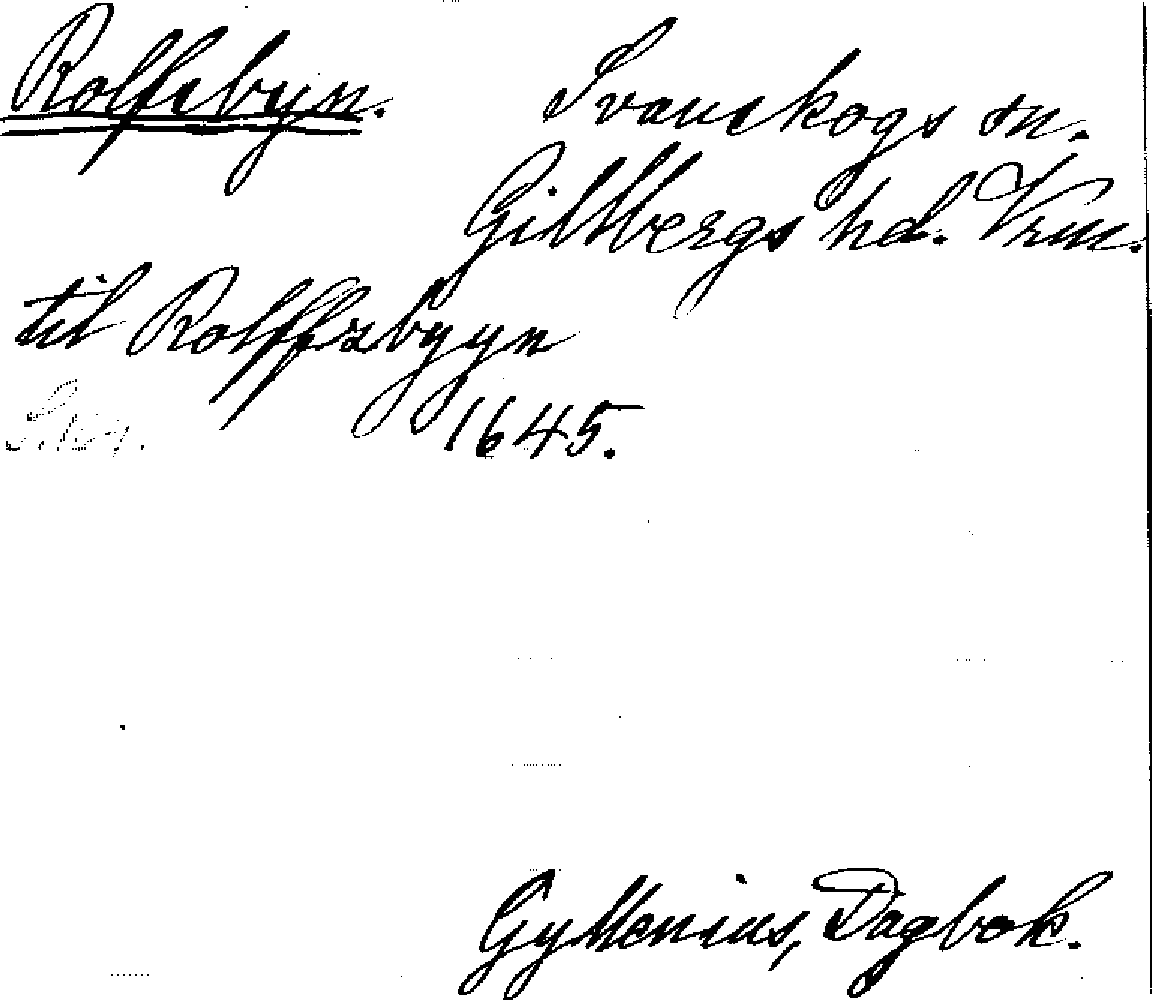 Rolfsbyn.
Svanskogs sn.
Gillbergs hd. Vrm.
til Rolffzbyyn
1645.
Gyllenius, Dagbok.